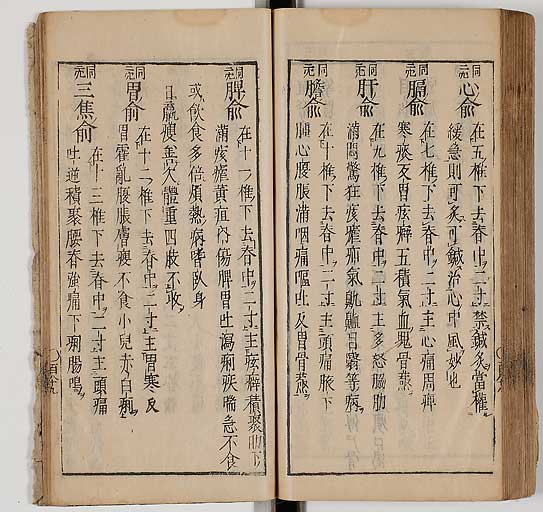 同元
心俞 在五椎下去脊中二寸禁鍼灸當權
緩急則可灸可鍼治心中風妙也
同元
膈俞 在七椎下去脊中二寸主心痛周痺
寒痰反胃痃癖五積氣血鬼骨蒸
同元
肝俞 在九椎下去脊中二寸主多怒脇肋
滿悶驚狂痎瘧疝氣鼽衄目翳等病
同元
膽俞 在十椎下去脊中二寸主頭痛腋下
腫心腹脹滿咽痛嘔吐反胃骨蒸
同元
脾俞 在十一椎下去脊中二寸主痃癖積聚肋下
滿痎瘧黃疸內傷脾胃吐瀉痢疾喘急不食
或飲食多倍煩熱病嗜臥身
日羸瘦盗欠體重四肢不收
同元
胃俞 在十二椎下去脊中二寸主胃寒反
胃霍亂腹脹膚瘦不食小兒赤白痢
三焦俞 在十三椎下去脊中二寸主頭痛
吐逆積聚腰脊強痛下痢腸鳴